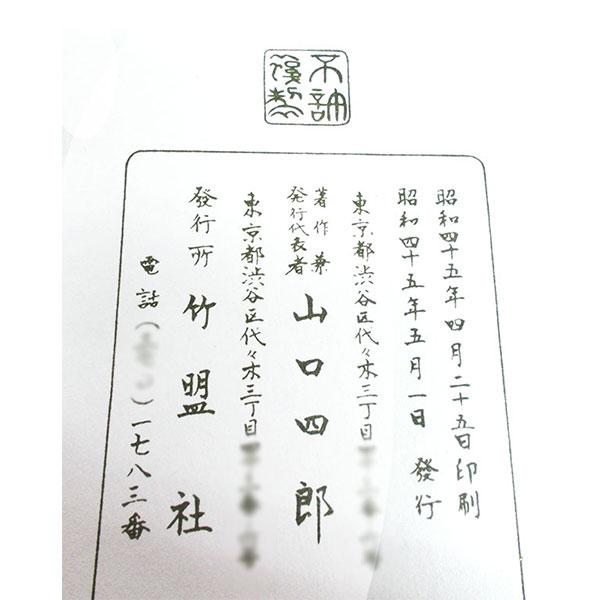 不許複製
昭和四十五年四月二十五日印刷
昭和四十五年五月一日 發行
東京都渋谷区代々木三丁目
著作兼発行代表者 山口四郎
東京都渋谷区代々木三丁目
發行所 竹盟社
電話( )一七八三番